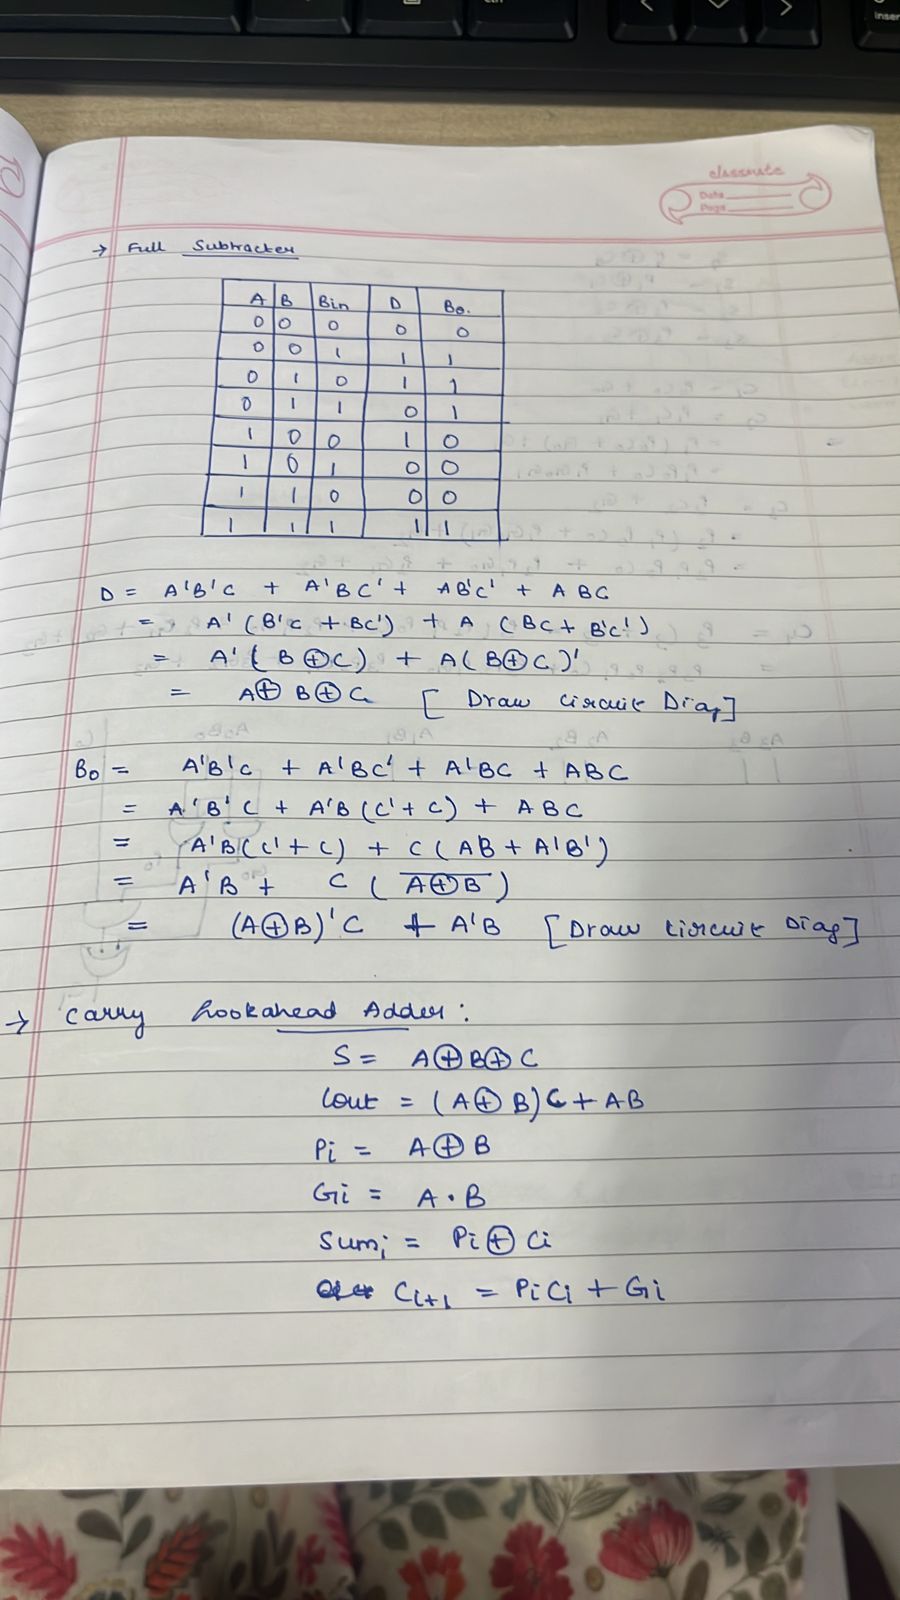 classmate
Date
Page
→ Full Subtracter
A B Bin D Bo.
0 0 0 0 0
0 0 1 1 1
0 1 0 1 1
0 1 1 0 1
1 0 0 1 0
1 0 1 0 0
1 1 0 0 0
1 1 1 1 1
D = A'B'C + A'BC' + AB'C' + ABC
= A' (B'C + BC') + A (BC + B'C')
= A' (B⊕C) + A(B⊕C)'
= A⊕B⊕C [Draw Circuit Diag]
Bo = A'B'C + A'BC' + A'BC + ABC
= A'B'C + A'B(C'+C) + ABC
= A'B(C'+C) + C(AB + A'B')
= A'B + C (\overline{A⊕B})
= (A⊕B)'C + A'B [Draw Circuit Diag]
→ Carry Lookahead Adder:
S = A⊕B⊕C
Cout = (A⊕B)C + AB
Pi = A⊕B
Gi = A·B
Sumi = Pi⊕Ci
Ci+1 = PiCi + Gi